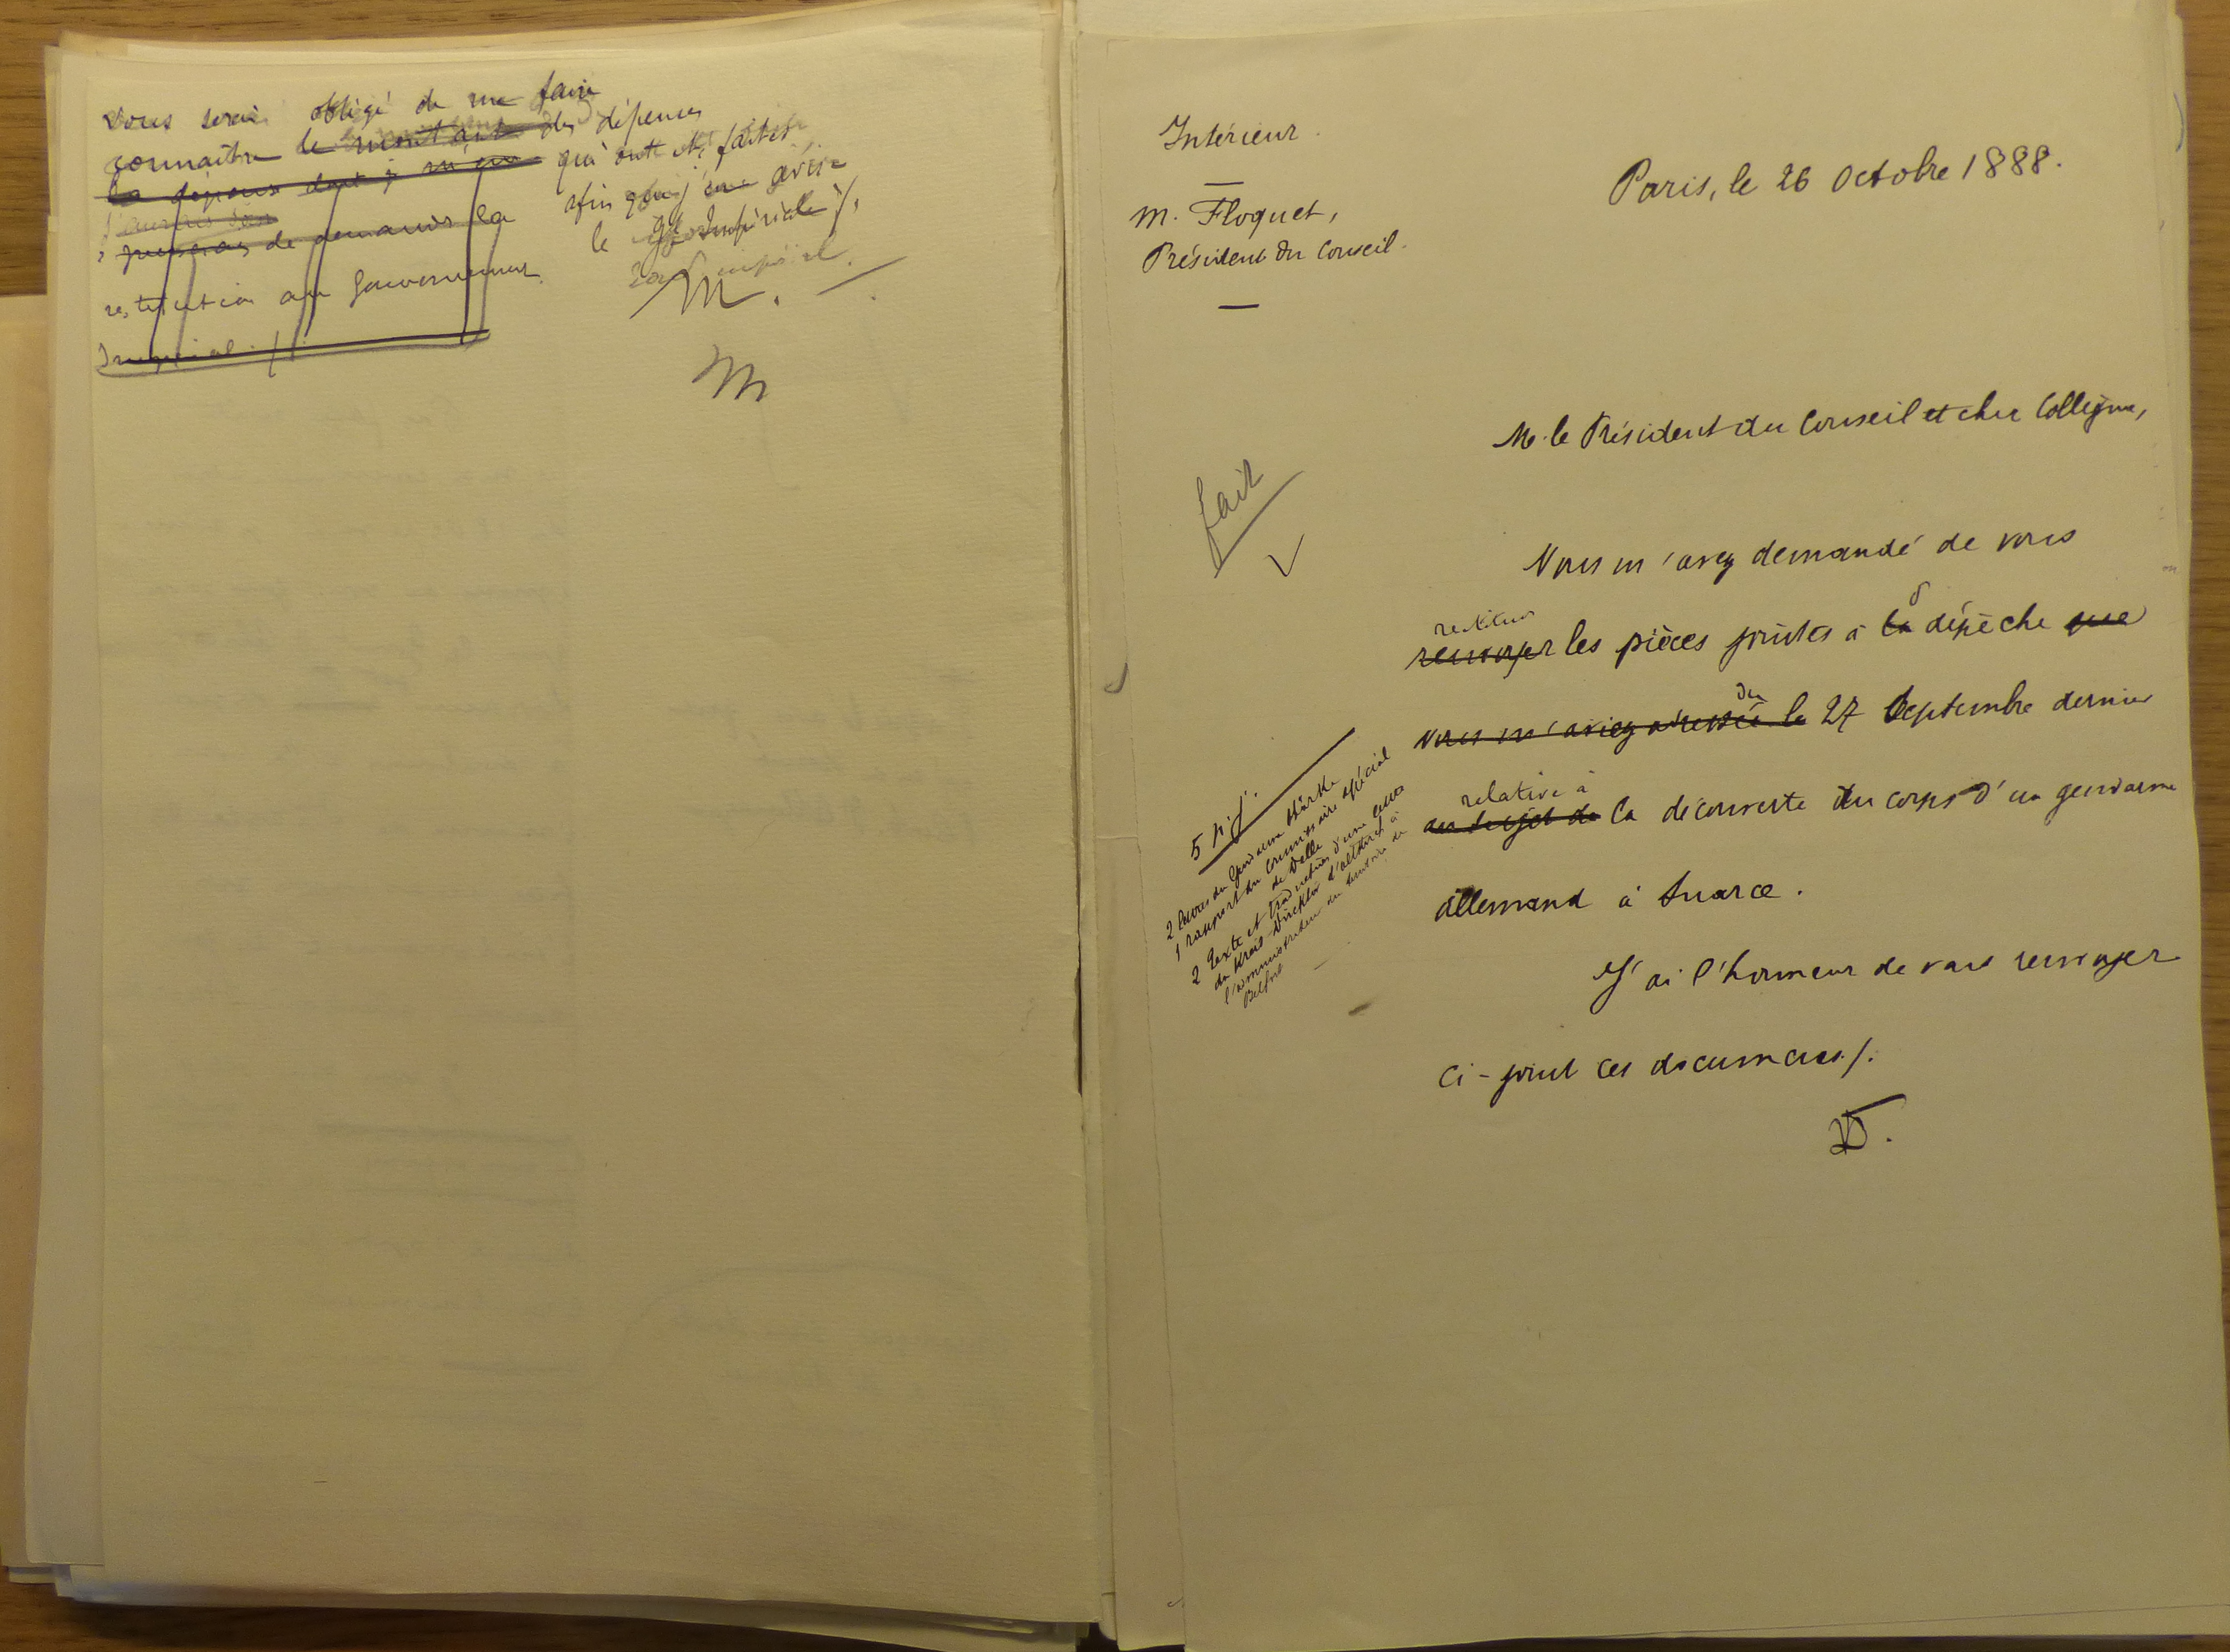 vous serai obligé de me faire
connaître le montant des dépenses
la dépense dont j qui ont été faites,
afin que j'en avise
puissions de demander la
le Gt Impérial ./.
restitution au Gouvernement
Impérial ./.
M.
M
Intérieur.
M. Floquet,
Président du Conseil.
Paris, le 26 Octobre 1888.
M. le Président du Conseil et cher Collègue,
fait
Vous m'avez demandé de vous
restituer
renvoyer les pièces jointes à la dépêche que
du
vous m'aviez adressée le 27 Septembre dernier
relative à
au sujet de la découverte du corps d'un gendarme
allemand à Suarce.
J'ai l'honneur de vous renvoyer
ci-joint ces documents ./.
5 p. j.
2 livres du Gendarme
1 rapport du Commissaire spécial
de Delle
2 texte et traduction d'une lettre
du Kreis-Direktor d'Altkirch à
l'administrateur du territoire de
Belfort